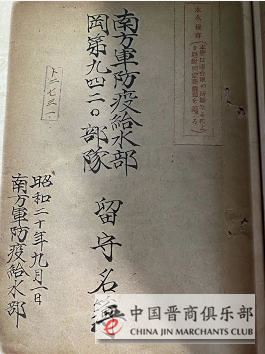 南方軍防疫給水部
岡第九四二〇部隊
留守名簿
昭和二十年九月一日
南方軍防疫給水部
中国晋商俱乐部
CHINA JIN MARCHANTS CLUB